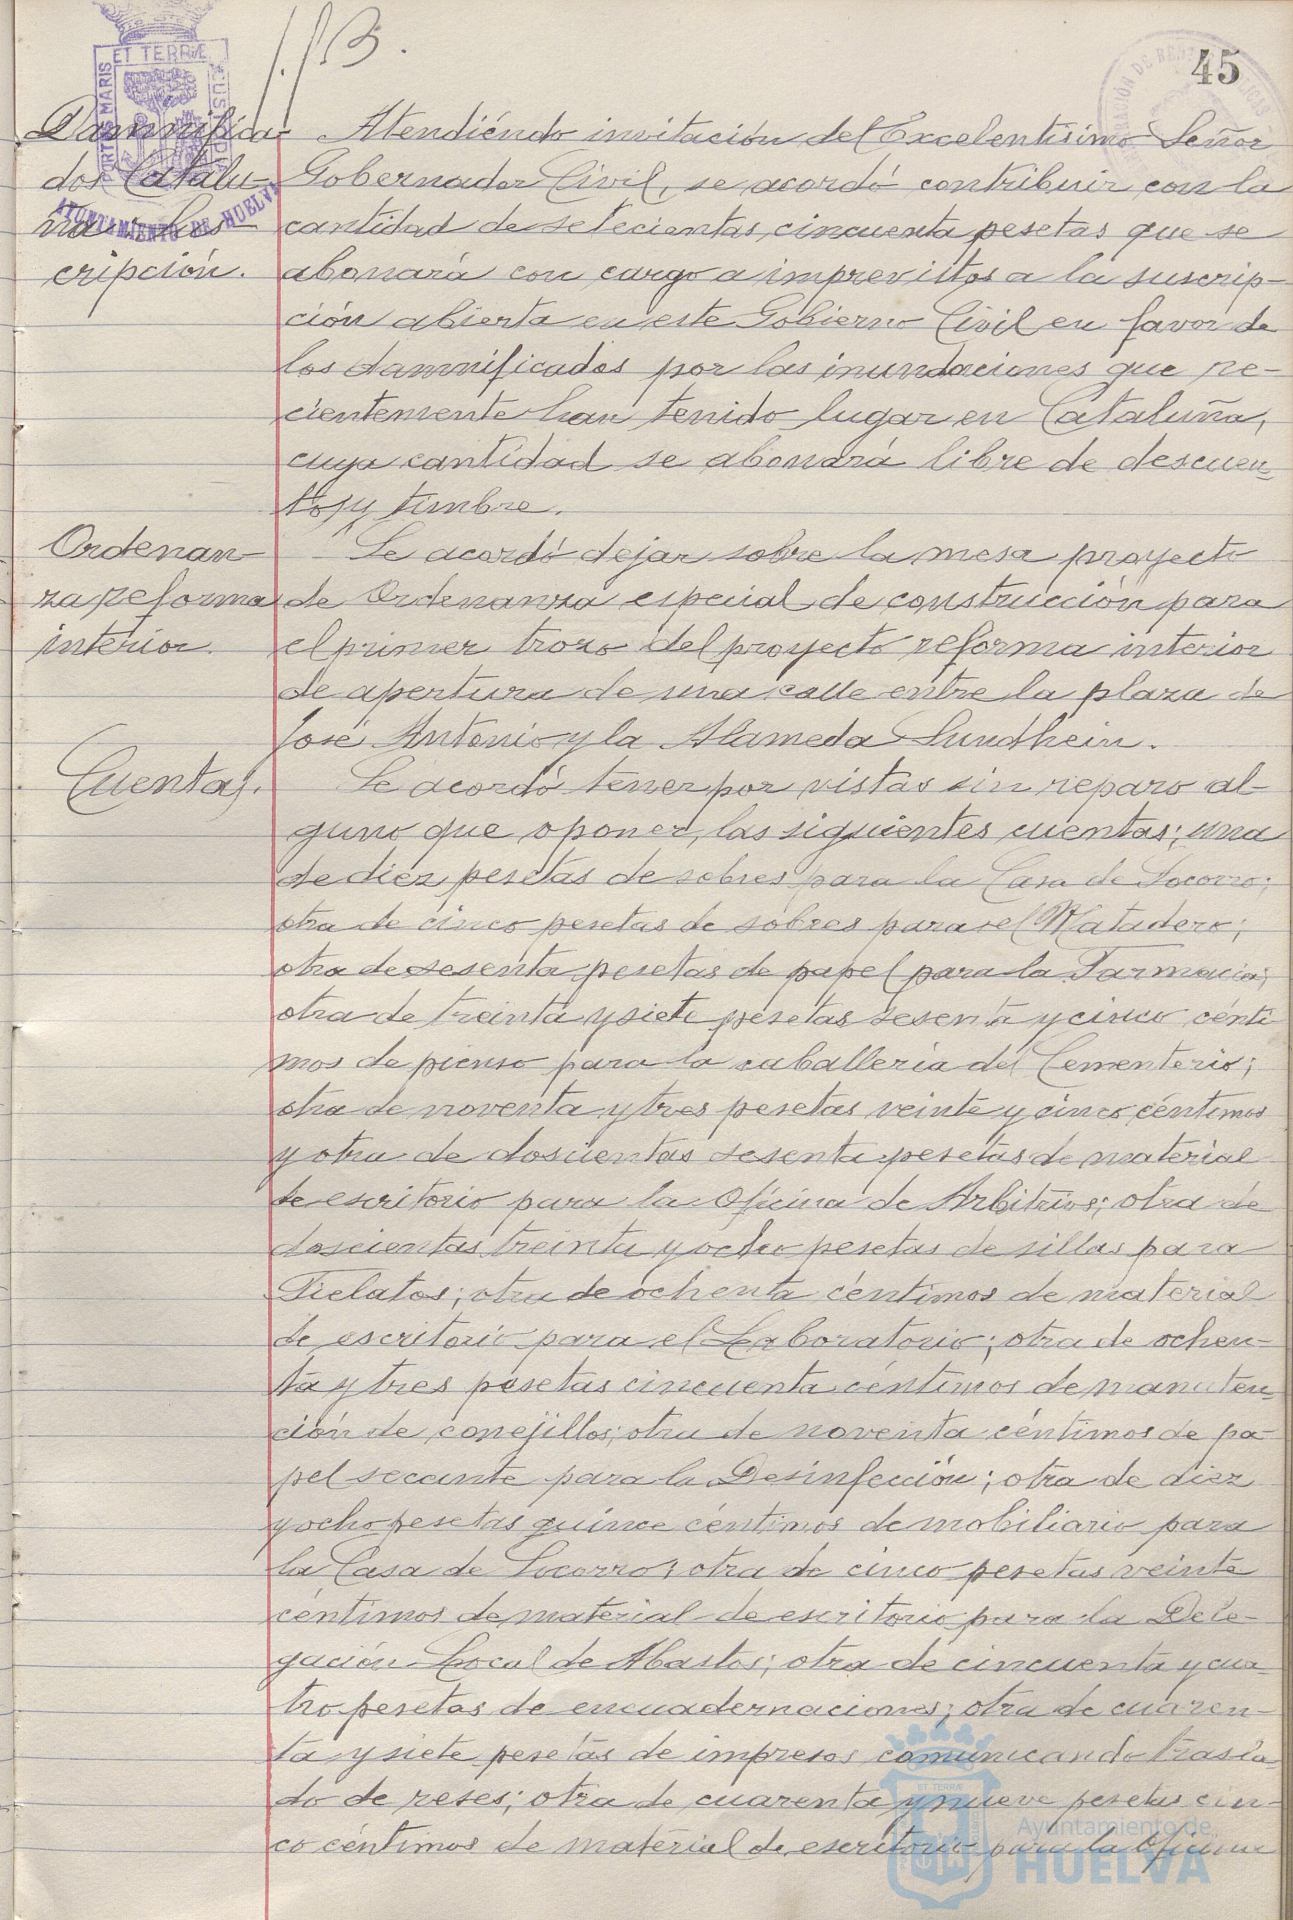 45
PORTUS MARIS ET TERRÆ CUSTODIA
AYUNTAMIENTO DE HUELVA
Damnifica-
dos Catalu-
ña sus-
cripción.
Atendiéndo invitación del Excelentísimo Señor
Gobernador Civil, se acordó contribuir con la
cantidad de setecientas cincuenta pesetas que se
abonará con cargo a imprevistos a la suscrip-
ción abierta en este Gobierno Civil en favor de
los damnificados por las inundaciones que re-
cientemente han tenido lugar en Cataluña,
cuya cantidad se abonará libre de descuen-
tos y timbre.
Ordenan-
za reforma
interior.
Se acordó dejar sobre la mesa proyecto
de Ordenanza especial de construcción para
el primer trozo del proyecto reforma interior
de apertura de una calle entre la plaza de
José Antonio y la Alameda Sundhein.
Cuentas.
Se acordó tener por vistas sin reparo al-
guno que oponer, las siguientes cuentas; una
de diez pesetas de sobres para la Casa de Socorro;
otra de cinco pesetas de sobres para el Matadero;
otra de sesenta pesetas de papel para la Farmacia;
otra de treinta y siete pesetas sesenta y cinco cénti
mos de pienso para la caballería del Cementerio;
otra de noventa y tres pesetas veinte y cinco céntimos
y otra de doscientas sesenta pesetas de material
de escritorio para la Oficina de Arbitrios; otra de
doscientas treinta y ocho pesetas de sillas para
Fielatos; otra de ochenta céntimos de material
de escritorio para el Laboratorio; otra de ochen-
ta y tres pesetas cincuenta céntimos de manuten-
ción de conejillos; otra de noventa céntimos de pa-
pel secante para la Desinfección; otra de diez
y ocho pesetas quince céntimos de mobiliario para
la Casa de Socorro; otra de cinco pesetas veinte
céntimos de material de escritorio para la Dele-
gación Local de Abastos; otra de cincuenta y cua-
tro pesetas de encuadernaciones; otra de cuaren-
ta y siete pesetas de impresos comunicando trasla-
do de reses; otra de cuarenta y nueve pesetas cin-
co céntimos de material de escritorio para la Oficina
Ayuntamiento de
HUELVA